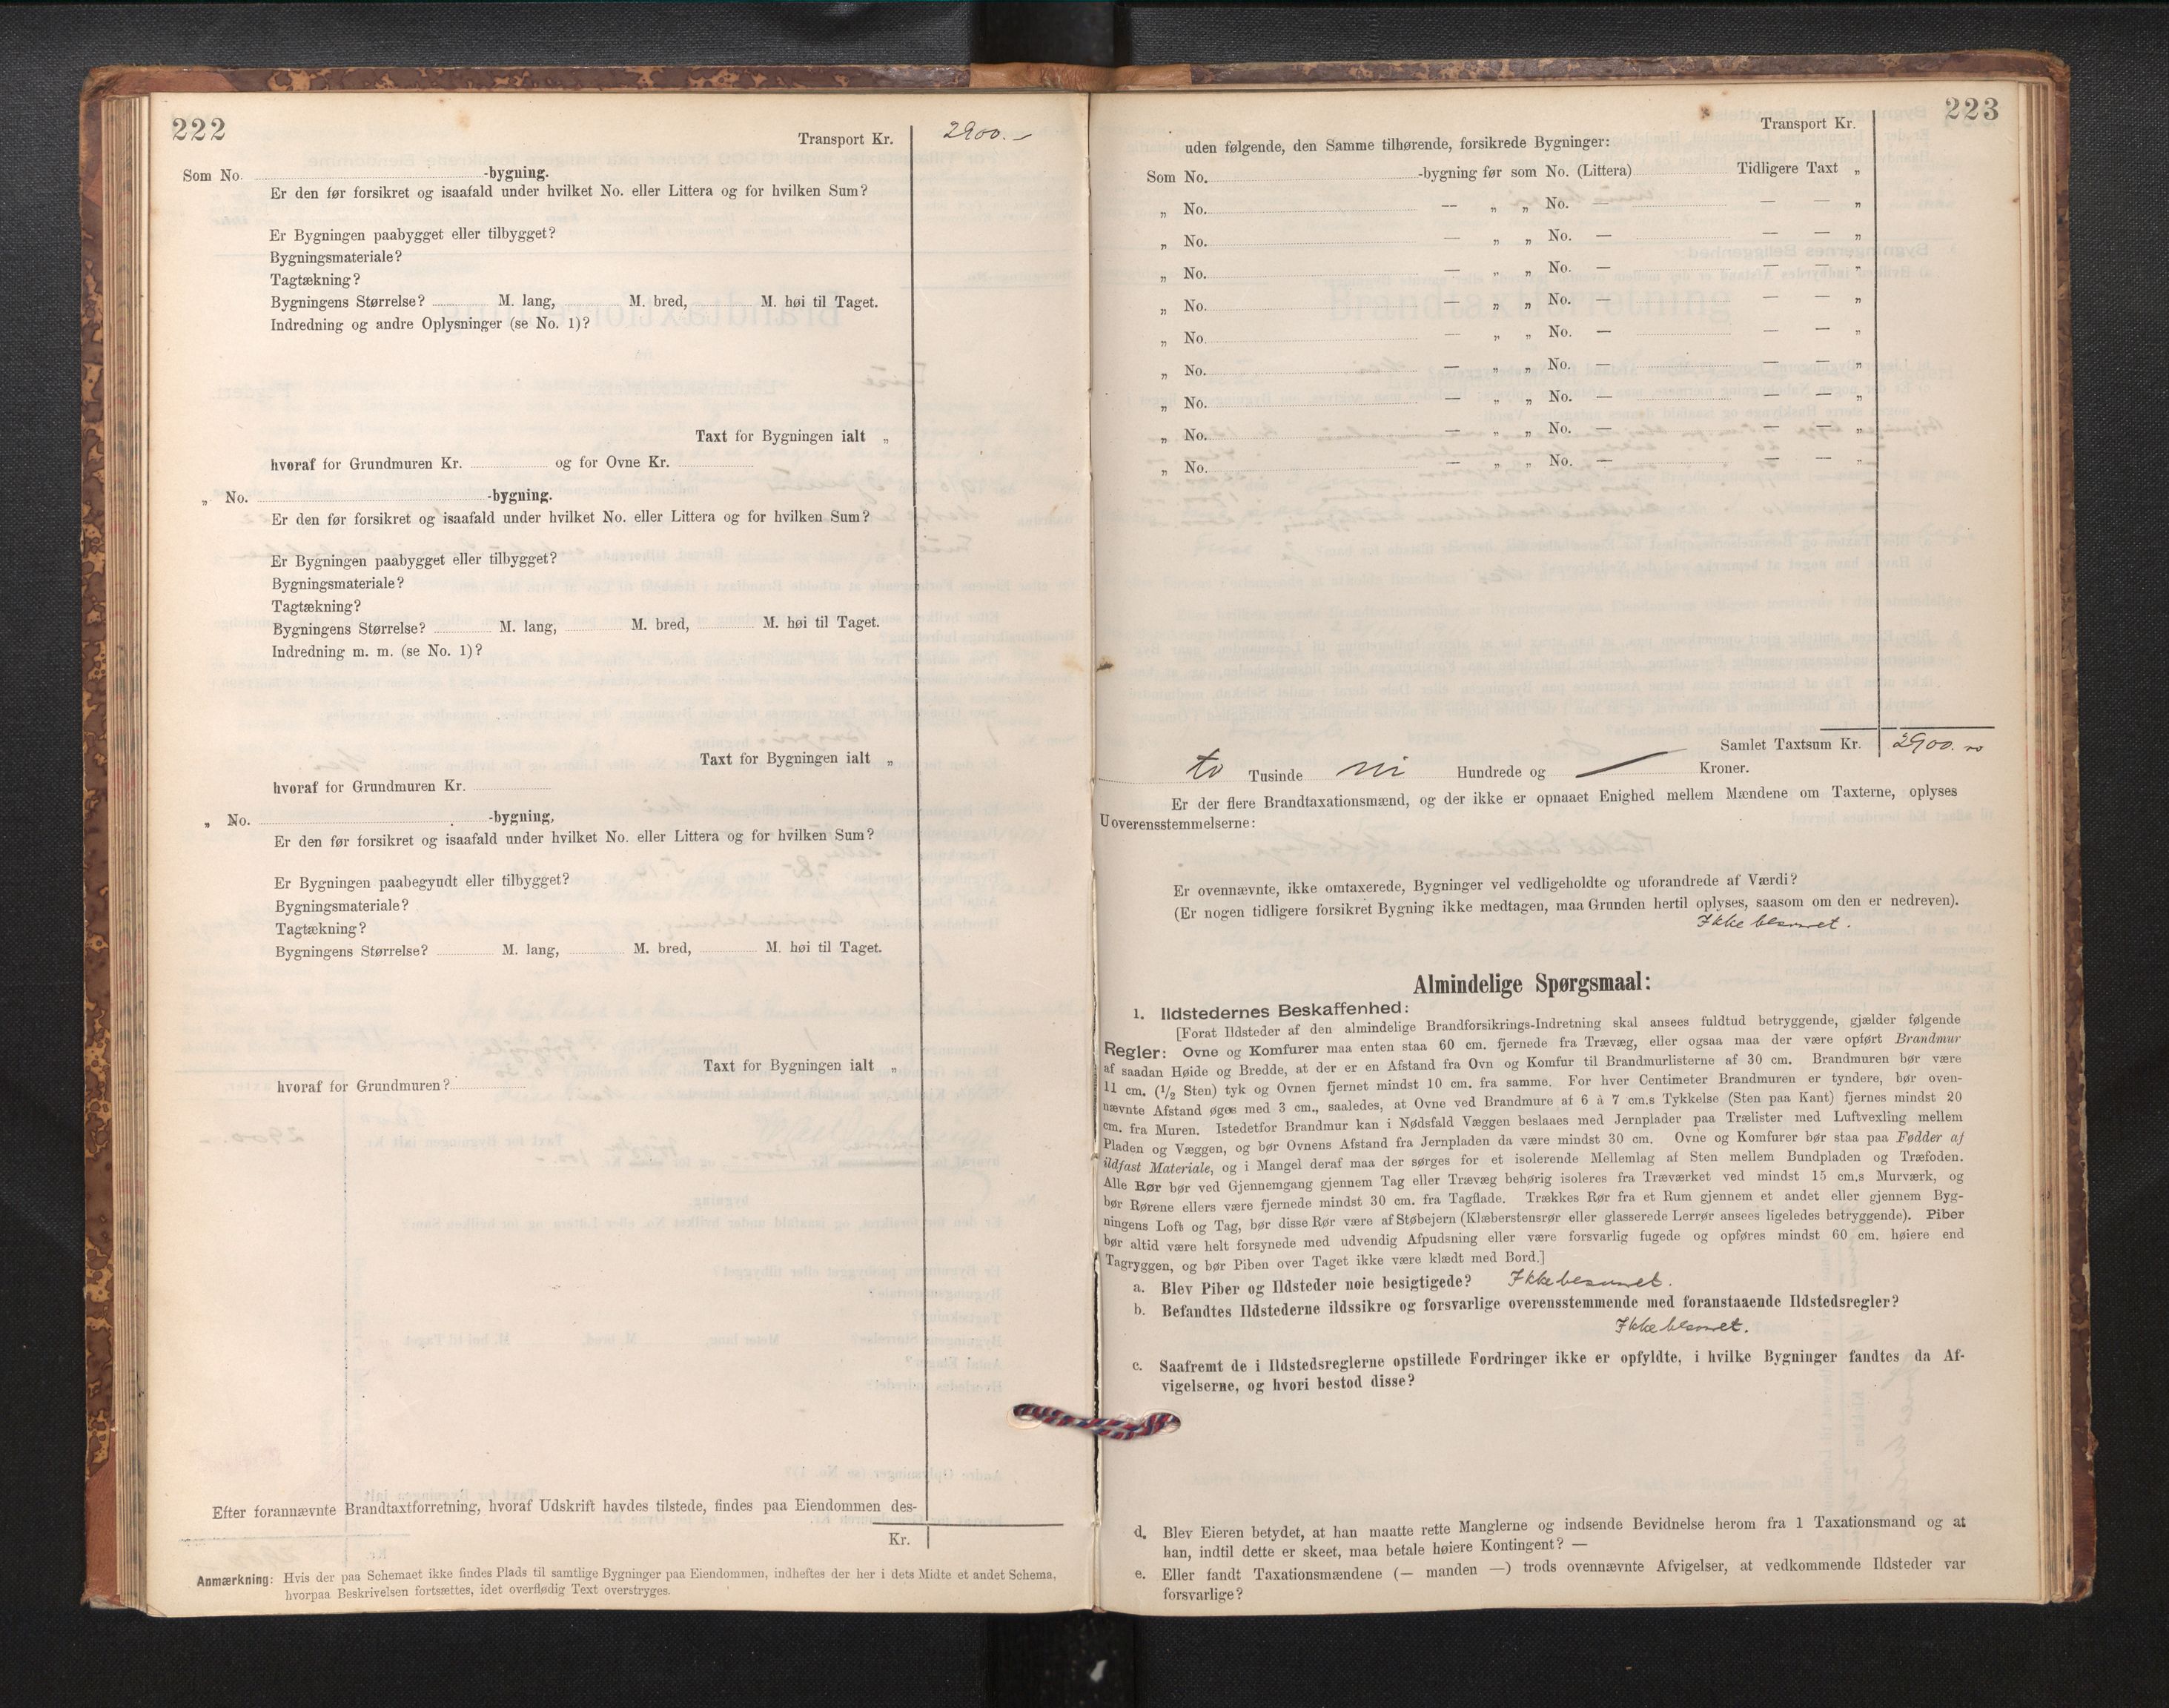 222
Transport Kr. 2900.–
Som No. -bygning.
Er den før forsikret og isaafald under hvilket No. eller Littera og for hvilken Sum?
Er Bygningen paabygget eller tilbygget?
Bygningsmateriale?
Tagtækning?
Bygningens Størrelse? M. lang, M. bred, M. høi til Taget.
Indredning og andre Oplysninger (se No. 1)?
Taxt for Bygningen ialt „
hvoraf for Grundmuren Kr. og for Ovne Kr.
„ No. -bygning.
Er den før forsikret og isaafald under hvilket No. eller Littera og for hvilken Sum?
Er Bygningen paabygget eller tilbygget?
Bygningsmateriale?
Tagtækning?
Bygningens Størrelse? M. lang, M. bred, M. høi til Taget.
Indredning m. m. (se No. 1)?
Taxt for Bygningen ialt „
hvoraf for Grundmuren Kr.
„ No. -bygning,
Er den før forsikret og isaafald under hvilket No. eller Littera og for hvilken Sum?
Er Bygningen paabegyndt eller tilbygget?
Bygningsmateriale?
Tagtækning?
Bygningens Størrelse? M. lang, M. bred, M. høi til Taget.
Taxt for Bygningen ialt „
hvoraf for Grundmuren?
Efter forannævnte Brandtaxtforretning, hvoraf Udskrift havdes tilstede, findes paa Eiendommen des-
Kr.
Anmærkning: Hvis der paa Schemaet ikke findes Plads til samtlige Bygninger paa Eiendommen, indheftes der her i dets Midte et andet Schema,
hvorpaa Beskrivelsen fortsættes, idet overflødig Text overstryges.
223
Transport Kr.
uden følgende, den Samme tilhørende, forsikrede Bygninger:
Som No. -bygning før som No. (Littera) Tidligere Taxt „
„ No. — „ „ No. — — — „
„ No. — „ „ No. — — — „
„ No. — „ „ No. — — — „
„ No. — „ „ No. — — — „
„ No. — „ „ No. — — — „
„ No. — „ „ No. — — — „
„ No. — „ „ No. — — — „
„ No. — „ „ No. — — — „
„ No. — „ „ No. — — — „
Samlet Taxtsum Kr. 2900.
to Tusinde ni Hundrede og — Kroner.
Er der flere Brandtaxationsmænd, og der ikke er opnaaet Enighed mellem Mændene om Taxterne, oplyses
Uoverensstemmelserne:
Er ovennævnte, ikke omtaxerede, Bygninger vel vedligeholdte og uforandrede af Værdi?
(Er nogen tidligere forsikret Bygning ikke medtagen, maa Grunden hertil oplyses, saasom om den er nedreven).
Ikke besvaret.
Almindelige Spørgsmaal:
1. Ildstedernes Beskaffenhed:
[Forat Ildsteder af den almindelige Brandforsikrings-Indretning skal ansees fuldtud betryggende, gjælder følgende
Regler: Ovne og Komfurer maa enten staa 60 cm. fjernede fra Trævæg, eller ogsaa maa der være opført Brandmur
af saadan Høide og Bredde, at der er en Afstand fra Ovn og Komfur til Brandmurlisterne af 30 cm. Brandmuren bør være
11 cm. (1/2 Sten) tyk og Ovnen fjernet mindst 10 cm. fra samme. For hver Centimeter Brandmuren er tyndere, bør oven-
nævnte Afstand øges med 3 cm., saaledes, at Ovne ved Brandmure af 6 à 7 cm.s Tykkelse (Sten paa Kant) fjernes mindst 20
cm. fra Muren. Istedetfor Brandmur kan i Nødsfald Væggen beslaaes med Jernplader paa Trælister med Luftvexling mellem
Pladen og Væggen, og bør Ovnens Afstand fra Jernpladen da være mindst 30 cm. Ovne og Komfurer bør staa paa Fødder af
ildfast Materiale, og i Mangel deraf maa der sørges for et isolerende Mellemlag af Sten mellem Bundpladen og Træfoden.
Alle Rør bør ved Gjennemgang gjennem Tag eller Trævæg behørig isoleres fra Træværket ved mindst 15 cm.s Murværk, og
bør Rørene ellers være fjernede mindst 30 cm. fra Tagflade. Trækkes Rør fra et Rum gjennem et andet eller gjennem Byg-
ningens Loft og Tag, bør disse Rør være af Støbejern (Klæberstensrør eller glasserede Lerrør ansees ligeledes betryggende). Piber
bør altid være helt forsynede med udvendig Afpudsning eller være forsvarlig fugede og opføres mindst 60 cm. høiere end
Tagryggen, og bør Piben over Taget ikke være klædt med Bord.]
a. Blev Piber og Ildsteder nøie besigtigede? Ikke besvaret.
b. Befandtes Ildstederne ildssikre og forsvarlige overensstemmende med foranstaaende Ildstedsregler?
Ikke besvaret.
c. Saafremt de i Ildstedsreglerne opstillede Fordringer ikke er opfyldte, i hvilke Bygninger fandtes da Af-
vigelserne, og hvori bestod disse?
d. Blev Eieren betydet, at han maatte rette Manglerne og indsende Bevidnelse herom fra 1 Taxationsmand og at
han, indtil dette er skeet, maa betale høiere Kontingent? —
e. Eller fandt Taxationsmændene (— manden —) trods ovennævnte Afvigelser, at vedkommende Ildsteder var
forsvarlige?